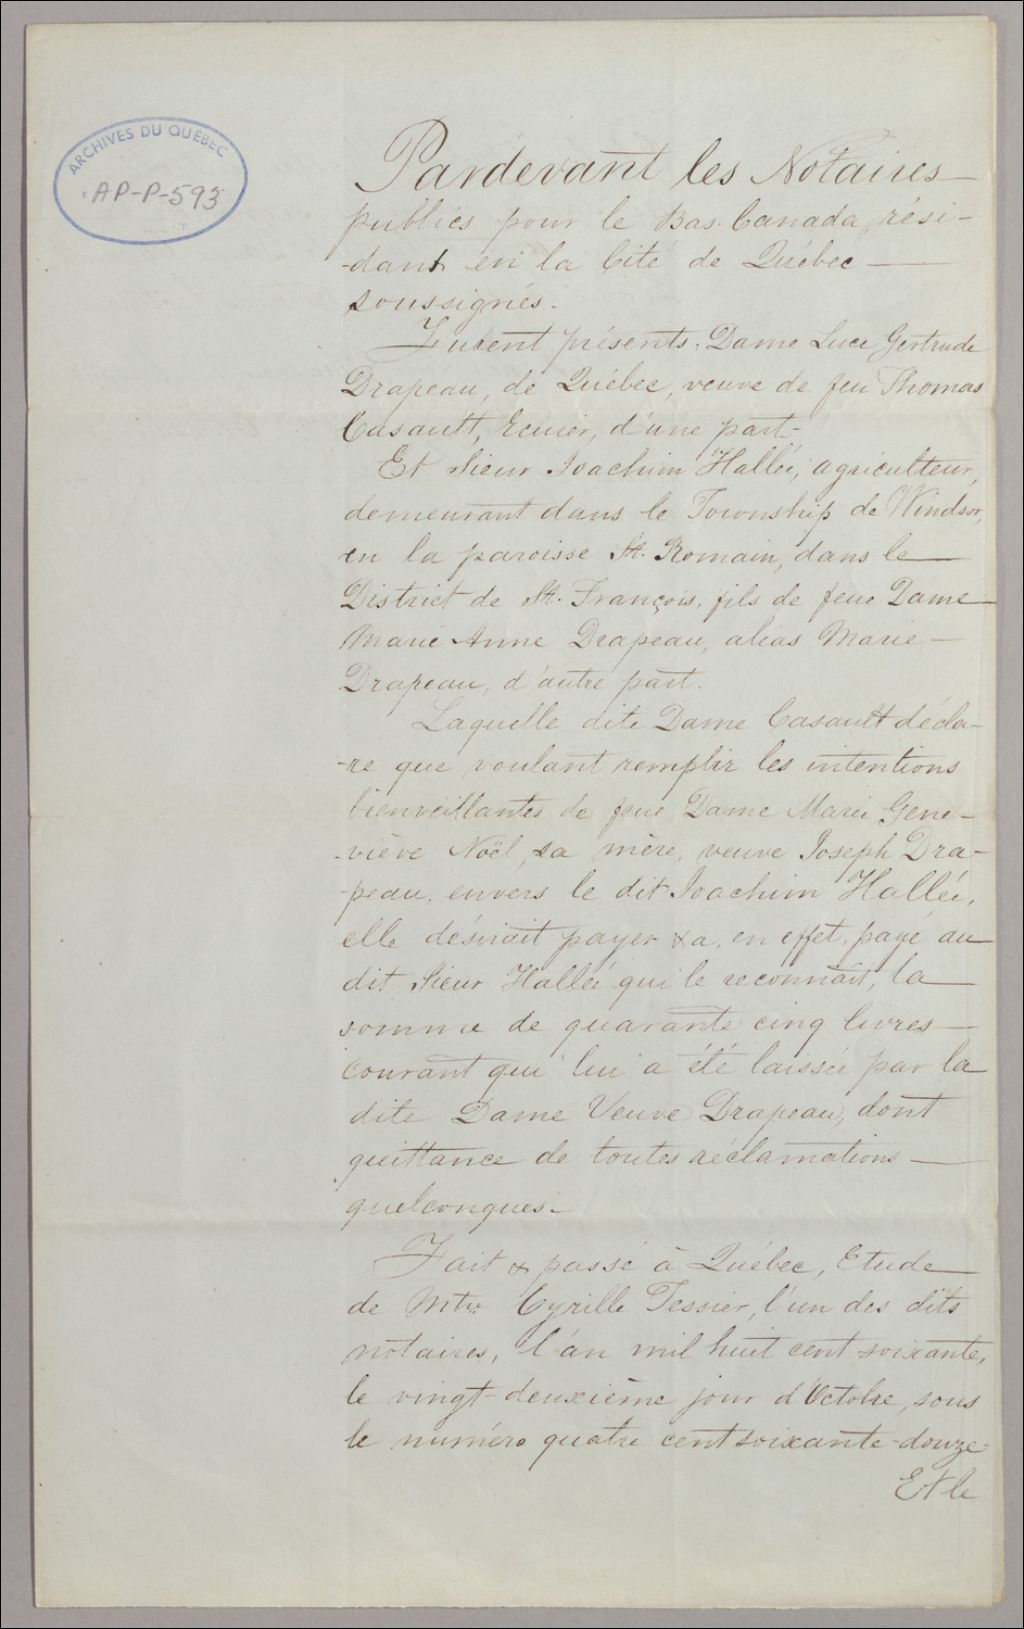 ARCHIVES DU QUÉBEC
AP-P-593
Pardevant les Notaires
publics pour le Bas-Canada, rési-
-dant en la Cité de Québec
soussignés.
Furent présents: Dame Luce Gertrude
Drapeau, de Québec, veuve de feu Thomas
Casault, Ecuier, d'une part.
Et Sieur Joachim Hallée, agriculteur,
demeurant dans le Township de Windsor,
en la paroisse St. Romain, dans le
District de St. François, fils de feue Dame
Marie Anne Drapeau, alias Marie
Drapeau, d'autre part.
Laquelle dite Dame Casault décla-
-re que voulant remplir les intentions
bienveillantes de feue Dame Marie Gene-
-viève Noël, sa mère, veuve Joseph Dra-
-peau, envers le dit Joachim Hallée,
elle désirait payer & a, en effet, payé au
dit Sieur Hallée qui le reconnaît, la
somme de quarante cinq livres
courant qui lui a été laissée par la
dite Dame Veuve Drapeau, dont
quittance de toutes réclamations
quelconques.
Fait & passé à Québec, Etude
de Mtre Cyrille Tessier, l'un des dits
notaires, l'an mil huit cent soixante,
le vingt-deuxième jour d'Octobre, sous
le numéro quatre cent soixante-douze.
Et le